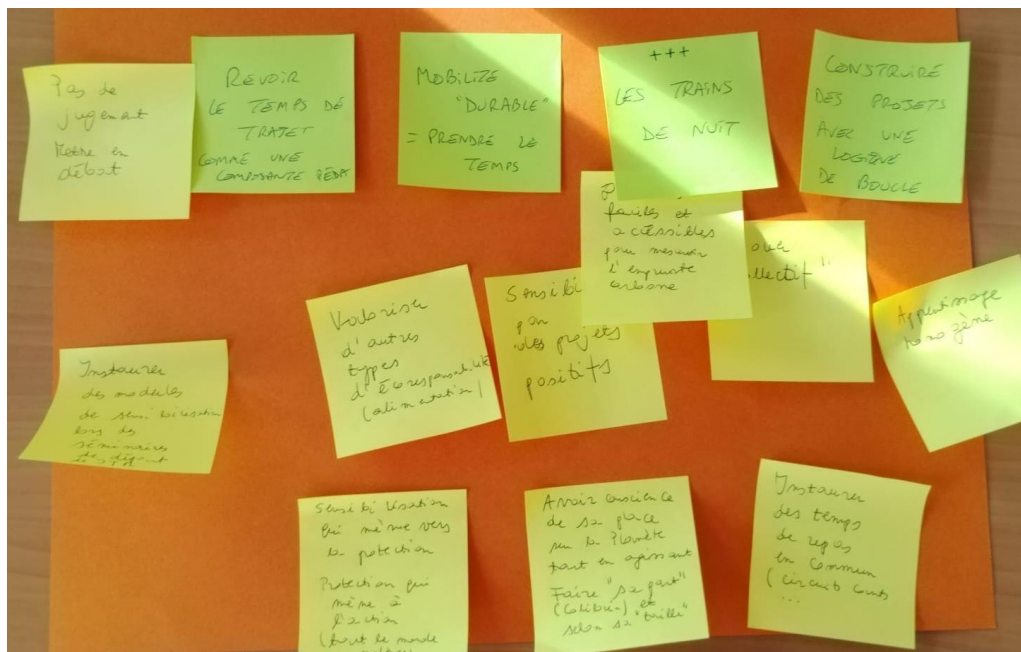 Pas de
jugement
Mettre en
débat
REVOIR
LE TEMPS DE
TRAJET
COMME UNE
COMPOSANTE PÉDA
MOBILITÉ
"DURABLE"
= PRENDRE LE
TEMPS
+++
LES TRAINS
DE NUIT
CONSTRUIRE
DES PROJETS
AVEC UNE
LOGIQUE
DE BOUCLE
faciles et
accessibles
pour mesurer
l'empreinte
carbone
llectif"
Apprentissage
Instaurer
des modules
de sensibilisation
lors des
séminaires
de départ
Valoriser
d'autres
types
d'écoresponsabilité
(alimentation)
Sensibi
par
des projets
positifs
Sensibilisation
qui mène vers
la protection
Protection qui
mène à
l'action
(tout le monde
Avoir conscience
de sa place
sur la Planète
tout en agissant
Faire "sa part"
(Colibri) et
selon sa "taille"
Instaurer
des temps
de repas
en commun
(circuits courts
...